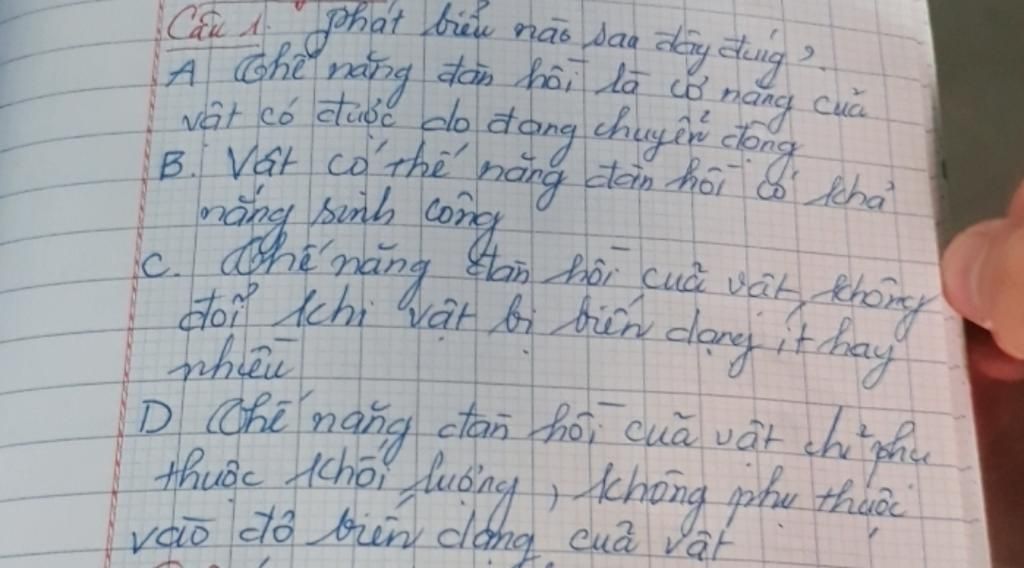 Câu 1. Phát biểu nào sau đây đúng?
A Thế năng đàn hồi là cơ năng của
vật có được do đang chuyển động
B. Vật có thế năng đàn hồi có khả
năng sinh công
C. Thế năng đàn hồi của vật không
đổi khi vật bị biến dạng ít hay
nhiều
D Thế năng đàn hồi của vật chỉ phụ
thuộc khối lượng, không phụ thuộc
vào độ biến dạng của vật